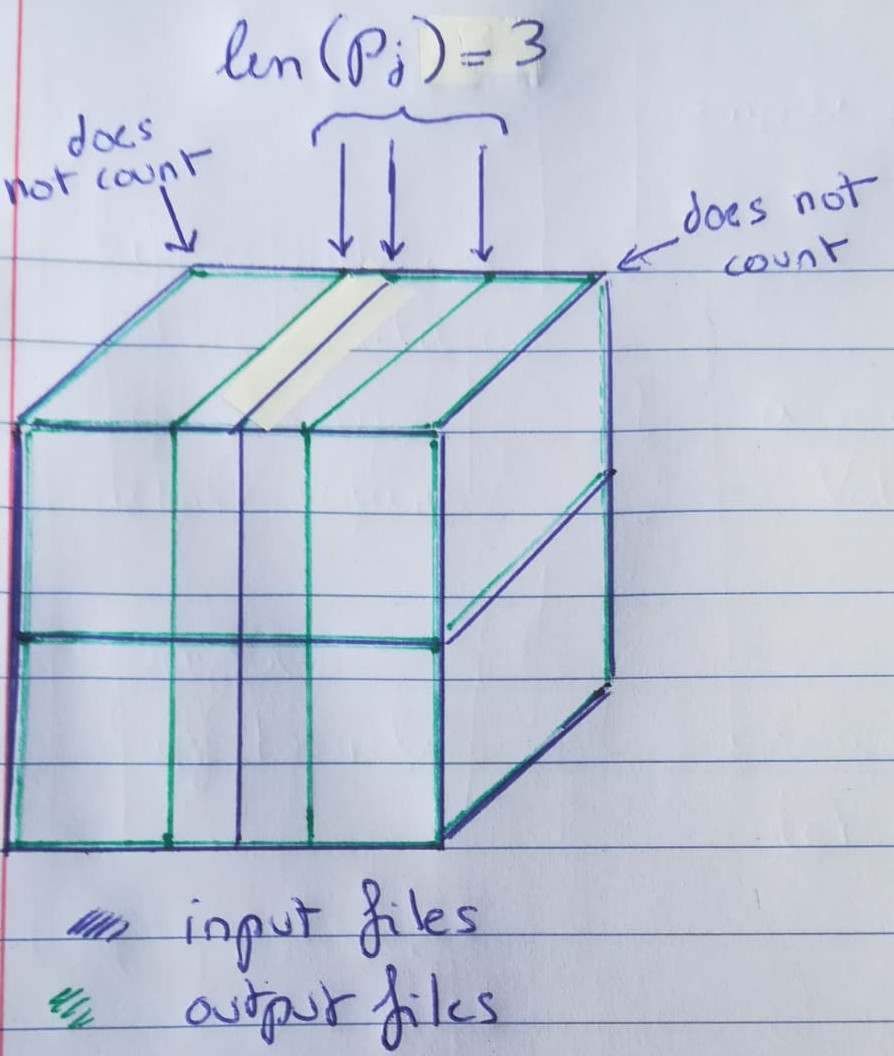 len(Pj) = 3
does
not count
does not
count
input files
output files